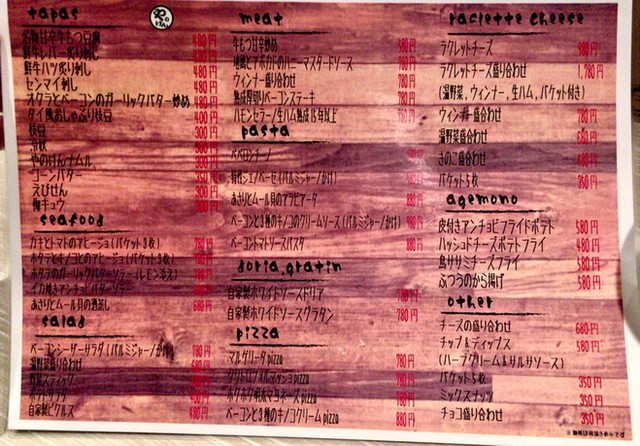 tapas
名物甘辛牛もつ豆腐 480円
鮮牛レバー炙り刺し 480円
鮮牛ハツ炙り刺し 480円
センマイ刺し 480円
オクラとベーコンのガーリックバター炒め 480円
タイ風おしゃぶり枝豆 400円
枝豆 300円
冷奴 300円
やのけんナムル 300円
コーンバター 350円
えびせん
梅キュウ
seafood
カキとトマトのアヒージョ(バケット3枚) 780円
ホタテとキノコとのアヒージョ(バケット3枚) 780円
ホタテのガーリックバターソテー(レモン添え) 780円
イカ焼きアンチョビバターソテー
あさりとムール貝の酒蒸し 680円
salad
ベーコンシーザーサラダ(パルミジャーノかけ) 780円
温野菜盛り合わせ
野菜スティック
ポテトサラダ
自家製ピクルス
meat
牛もつ甘辛炒め 580円
地鶏とアボカドのハニーマスタードソース 780円
ウィンナー盛り合わせ 780円
熟成厚切りベーコンステーキ
ハモンセラーノ生ハム熟成18年以上 780円
pasta
ペペロンチーノ
特性ジェノベーゼ(パルミジャーノかけ)
あさりとムール貝のアラビアータ
ベーコンと3種のキノコのクリームソース(パルミジャーノかけ) 980円
ベーコントマトソースパスタ 880円
doria,gratin
自家製ホワイトソースドリア 780円
自家製ホワイトソースグラタン 780円
pizza
マルゲリータpizza 780円
クワトロフォルマッジョpizza
ホクホク明太マヨネーズpizza
ベーコンと3種のキノコクリームpizza 880円
raclette cheese
ラクレットチーズ 980円
ラクレットチーズ盛り合わせ 1,780円
(温野菜,ウィンナー,生ハム,バケット付き)
ウィンナー盛合わせ 780円
温野菜盛合わせ 680円
きのこ盛合わせ 480円
バケット5枚 350円
agemono
皮付きアンチョビフライドポテト 580円
ハッシュドチーズポテトフライ 480円
鳥ササミチーズフライ 580円
ふつうのから揚げ 580円
other
チーズの盛り合わせ 680円
チップ&ディップス 580円
(ハーブクリーム&サルサソース)
バケット5枚 350円
ミックスナッツ 350円
チョコ盛り合わせ 350円